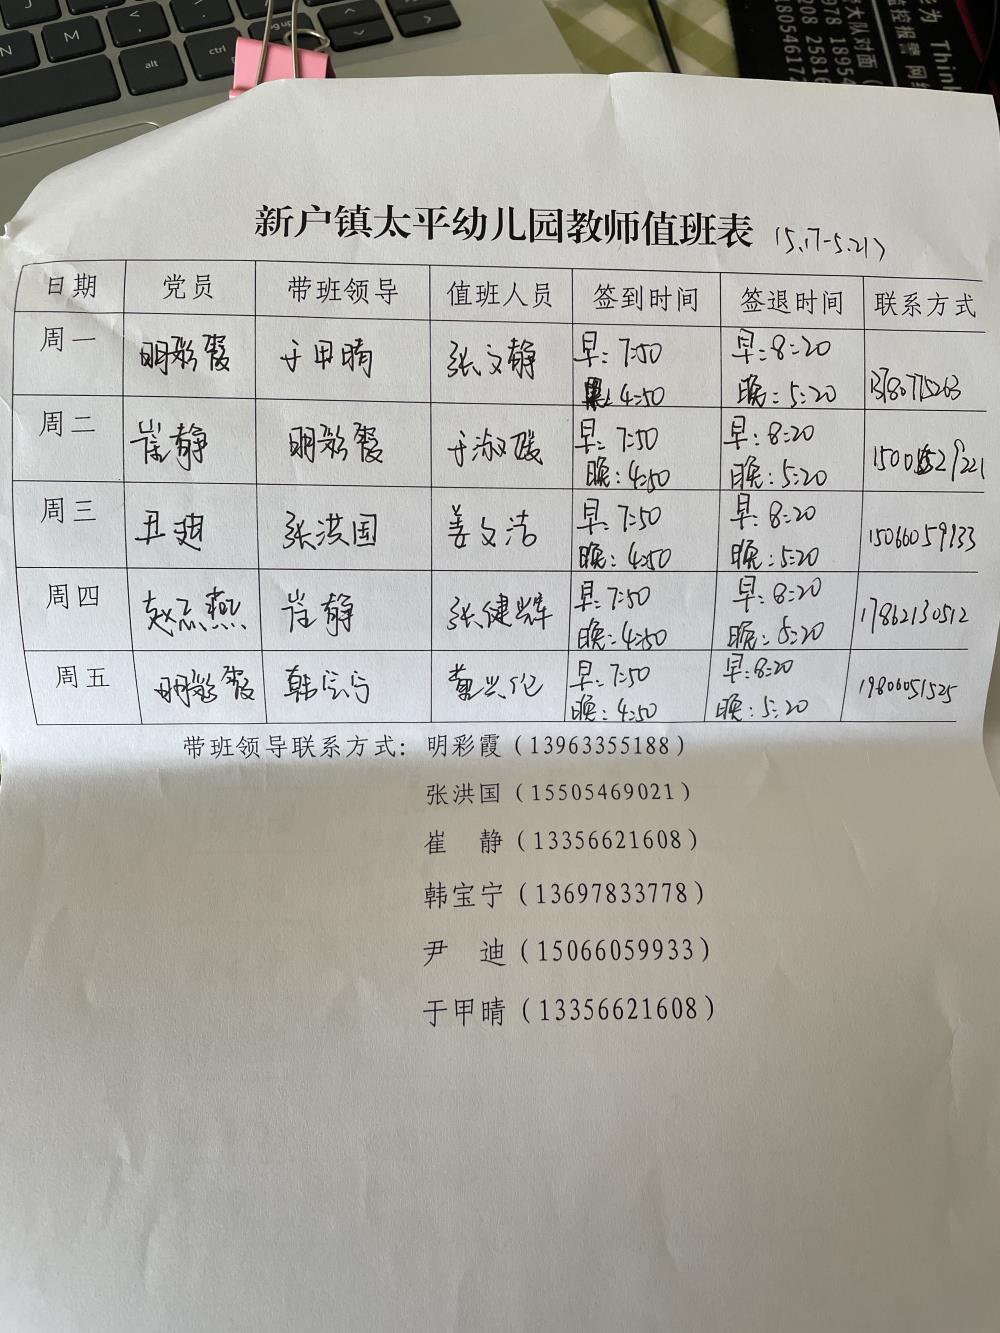 N
M
alt
ctrl
pg up
华为 Think
监控报警 网络
警大队对面(
978 18954
208 25816
18054617
新户镇太平幼儿园教师值班表 (5.17-5.21)
日期 党员 带班领导 值班人员 签到时间 签退时间 联系方式
周一 明彩霞 于甲晴 张文静 早:7:50 早:8:20
晚:4:50 晚:5:20
周二 崔静 明彩霞 于淑媛 早:7:50 早:8:20
晚:4:50 晚:5:20
周三 尹迪 张洪国 姜文洁 早:7:50 早:8:20 15066059933
晚:4:50 晚:5:20
周四 赵燕燕 崔静 张健辉 早:7:50 早:8:20 17862130512
晚:4:50 晚:5:20
周五 明彩霞 韩宝宁 早:7:50 早:8:20 19806051525
晚:4:50 晚:5:20
带班领导联系方式:明彩霞(13963355188)
张洪国(15505469021)
崔 静(13356621608)
韩宝宁(13697833778)
尹 迪(15066059933)
于甲晴(13356621608)